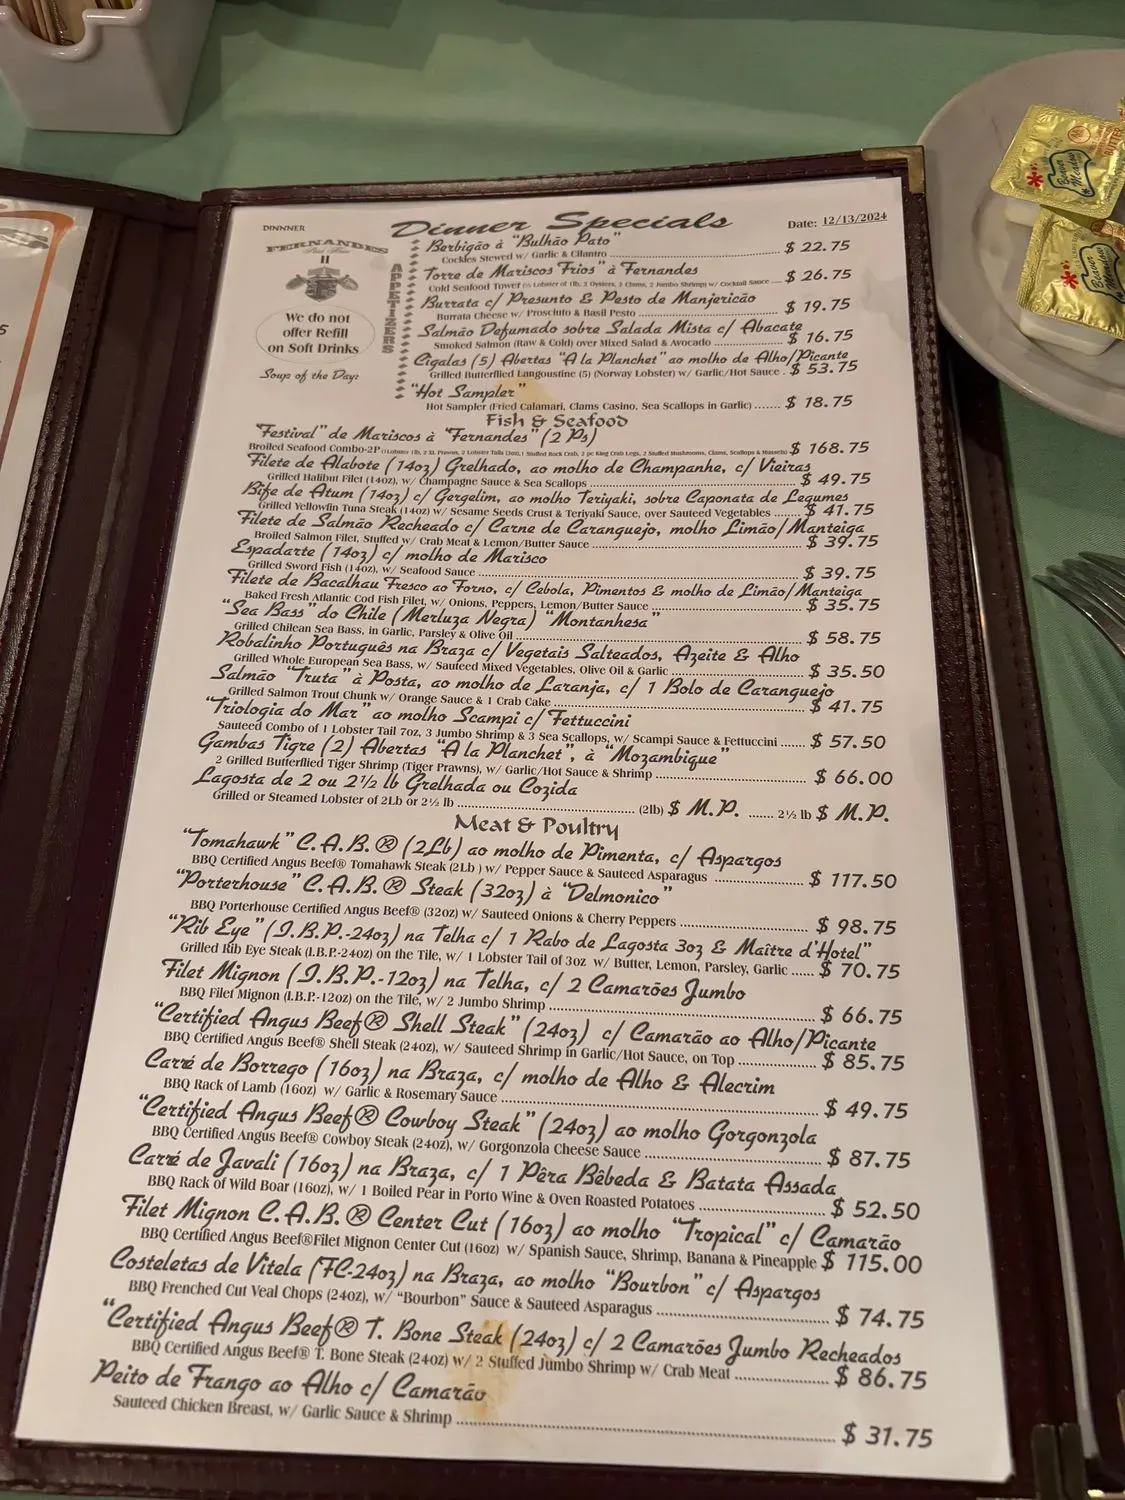 DINNNER
Dinner Specials
Date: 12/13/2024
FERNANDES
II
We do not
offer Refill
on Soft Drinks
Soup of the Day:
APPETIZERS
Berbigão à "Bulhão Pato"
Cockles Stewed w/ Garlic & Cilantro $ 22.75
Torre de Mariscos Frios" à Fernandes
Cold Seafood Tower (½ Lobster of 1lb, 2 Oysters, 2 Clams, 2 Jumbo Shrimp) w/ Cocktail Sauce $ 26.75
Burrata c/ Presunto & Pesto de Manjericão
Burrata Cheese w/ Prosciuto & Basil Pesto $ 19.75
Salmão Defumado sobre Salada Mista c/ Abacate
Smoked Salmon (Raw & Cold) over Mixed Salad & Avocado $ 16.75
Cigalas (5) Abertas "A la Planchet" ao molho de Alho/Picante
Grilled Butterflied Langoustine (5) (Norway Lobster) w/ Garlic/Hot Sauce . $ 53.75
"Hot Sampler"
Hot Sampler (Fried Calamari, Clams Casino, Sea Scallops in Garlic) ....... $ 18.75
Fish & Seafood
"Festival" de Mariscos à "Fernandes" (2 Ps)
Broiled Seafood Combo-2P $ 168.75
Filete de Alabote (14oz) Grelhado, ao molho de Champanhe, c/ Vieiras
Grilled Halibut Filet (14oz), w/ Champagne Sauce & Sea Scallops $ 49.75
Bife de Atum (14oz) c/ Gergelim, ao molho Teriyaki, sobre Caponata de Legumes
Grilled Yellowfin Tuna Steak (14oz) w/ Sesame Seeds Crust & Teriyaki Sauce, over Sauteed Vegetables ....... $ 41.75
Filete de Salmão Recheado c/ Carne de Caranguejo, molho Limão/Manteiga
Broiled Salmon Filet, Stuffed w/ Crab Meat & Lemon/Butter Sauce $ 39.75
Espadarte (14oz) c/ molho de Marisco
Grilled Sword Fish (14oz), w/ Seafood Sauce $ 39.75
Filete de Bacalhau Fresco ao Forno, c/ Cebola, Pimentos & molho de Limão/Manteiga
Baked Fresh Atlantic Cod Fish Filet, w/ Onions, Peppers, Lemon/Butter Sauce $ 35.75
"Sea Bass" do Chile (Merluza Negra) "Montanhesa"
Grilled Chilean Sea Bass, in Garlic, Parsley & Olive Oil $ 58.75
Robalinho Português na Braza c/ Vegetais Salteados, Azeite & Alho
Grilled Whole European Sea Bass, w/ Sauteed Mixed Vegetables, Olive Oil & Garlic $ 35.50
Salmão "Truta" à Posta, ao molho de Laranja, c/ 1 Bolo de Caranguejo
Grilled Salmon Trout Chunk w/ Orange Sauce & 1 Crab Cake $ 41.75
"Triologia do Mar" ao molho Scampi c/ Fettuccini
Sauteed Combo of 1 Lobster Tail 7oz, 3 Jumbo Shrimp & 3 Sea Scallops, w/ Scampi Sauce & Fettuccini ...... $ 57.50
Gambas Tigre (2) Abertas "A la Planchet", à "Mozambique"
2 Grilled Butterflied Tiger Shrimp (Tiger Prawns), w/ Garlic/Hot Sauce & Shrimp $ 66.00
Lagosta de 2 ou 2½ lb Grelhada ou Cozida
Grilled or Steamed Lobster of 2Lb or 2½ lb (2lb) $ M.P. ....... 2½ lb $ M.P.
Meat & Poultry
"Tomahawk" C.A.B.® (2Lb) ao molho de Pimenta, c/ Aspargos
BBQ Certified Angus Beef® Tomahawk Steak (2Lb ) w/ Pepper Sauce & Sauteed Asparagus $ 117.50
"Porterhouse" C.A.B.® Steak (32oz) à "Delmonico"
BBQ Porterhouse Certified Angus Beef® (32oz) w/ Sauteed Onions & Cherry Peppers $ 98.75
"Rib Eye" (I.B.P.-24oz) na Telha c/ 1 Rabo de Lagosta 3oz & Maître d'Hotel"
Grilled Rib Eye Steak (I.B.P.-24oz) on the Tile, w/ 1 Lobster Tail of 3oz w/ Butter, Lemon, Parsley, Garlic ...... $ 70.75
Filet Mignon (I.B.P.-12oz) na Telha, c/ 2 Camarões Jumbo
BBQ Filet Mignon (I.B.P.-12oz) on the Tile, w/ 2 Jumbo Shrimp $ 66.75
"Certified Angus Beef® Shell Steak" (24oz) c/ Camarão ao Alho/Picante
BBQ Certified Angus Beef® Shell Steak (24oz), w/ Sauteed Shrimp in Garlic/Hot Sauce, on Top $ 85.75
Carré de Borrego (16oz) na Braza, c/ molho de Alho & Alecrim
BBQ Rack of Lamb (16oz) w/ Garlic & Rosemary Sauce $ 49.75
"Certified Angus Beef® Cowboy Steak" (24oz) ao molho Gorgonzola
BBQ Certified Angus Beef® Cowboy Steak (24oz), w/ Gorgonzola Cheese Sauce $ 87.75
Carré de Javali (16oz) na Braza, c/ 1 Pêra Bêbeda & Batata Assada
BBQ Rack of Wild Boar (16oz), w/ 1 Boiled Pear in Porto Wine & Oven Roasted Potatoes $ 52.50
Filet Mignon C.A.B.® Center Cut (16oz) ao molho "Tropical" c/ Camarão
BBQ Certified Angus Beef®Filet Mignon Center Cut (16oz) w/ Spanish Sauce, Shrimp, Banana & Pineapple $ 115.00
Costeletas de Vitela (FC-24oz) na Braza, ao molho "Bourbon" c/ Aspargos
BBQ Frenched Cut Veal Chops (24oz), w/ "Bourbon" Sauce & Sauteed Asparagus $ 74.75
"Certified Angus Beef® T. Bone Steak (24oz) c/ 2 Camarões Jumbo Recheados
BBQ Certified Angus Beef® T. Bone Steak (24oz) w/ 2 Stuffed Jumbo Shrimp w/ Crab Meat $ 86.75
Peito de Frango ao Alho c/ Camarão
Sauteed Chicken Breast, w/ Garlic Sauce & Shrimp $ 31.75